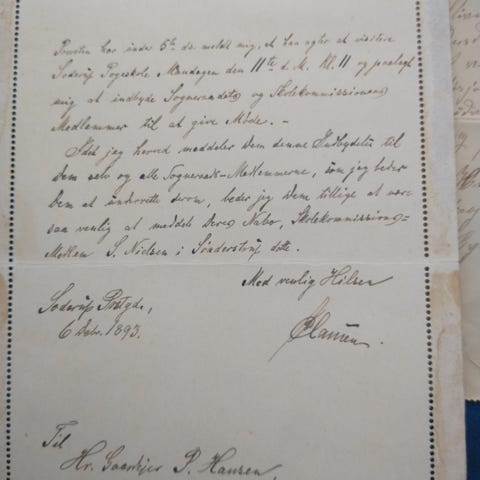 Provsten har under 5te ds. meldt mig, at han agter at visitere
Soderup Pogeskole Mandagen den 11te d. M. Kl. 11 og paalagt
mig at indbyde Sogneraadets og Skolekommissionens
Medlemmer til at give Møde. –
Idet jeg herved meddeler Dem denne Indbydelse til
Dem selv og alle Sogneraads-Medlemmerne, som jeg beder
Dem at underrette derom, beder jeg Dem tillige at være
saa venlig at meddele Deres Nabo, Skolekommissions-
Medlem S. Nielsen i Sønderstrup dette.
Med venlig Hilsen
Soderup Præstgd.,
6 1893.
Clausen.
Til
Hr. Gaardejer P. Hansen,